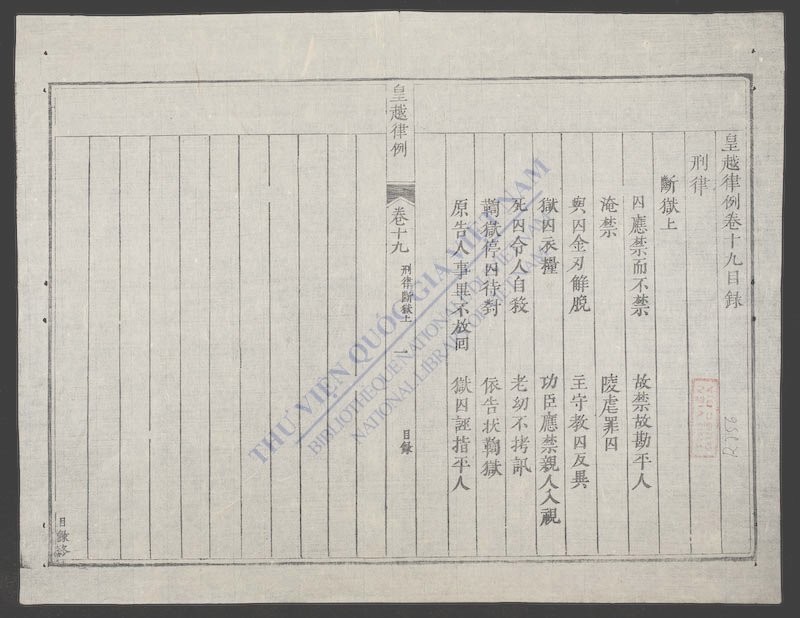 皇越律例卷十九目錄
刑律
斷獄上
囚應禁而不禁 故禁故勘平人
淹禁 陵虐罪囚
與囚金刃解脫 主守教囚反異
獄囚衣糧 功臣應禁親人入視
死囚令人自殺 老幼不拷訊
鞫獄停囚待對 依告狀鞫獄
原告人事畢不放回 獄囚誣指平人
皇越律例
卷十九 刑律斷獄上 一 目錄
THƯ VIỆN QUỐC GIA VIỆT NAM
BIBLIOTHÈQUE NATIONALE DU VIETNAM
NATIONAL LIBRARY OF VIETNAM